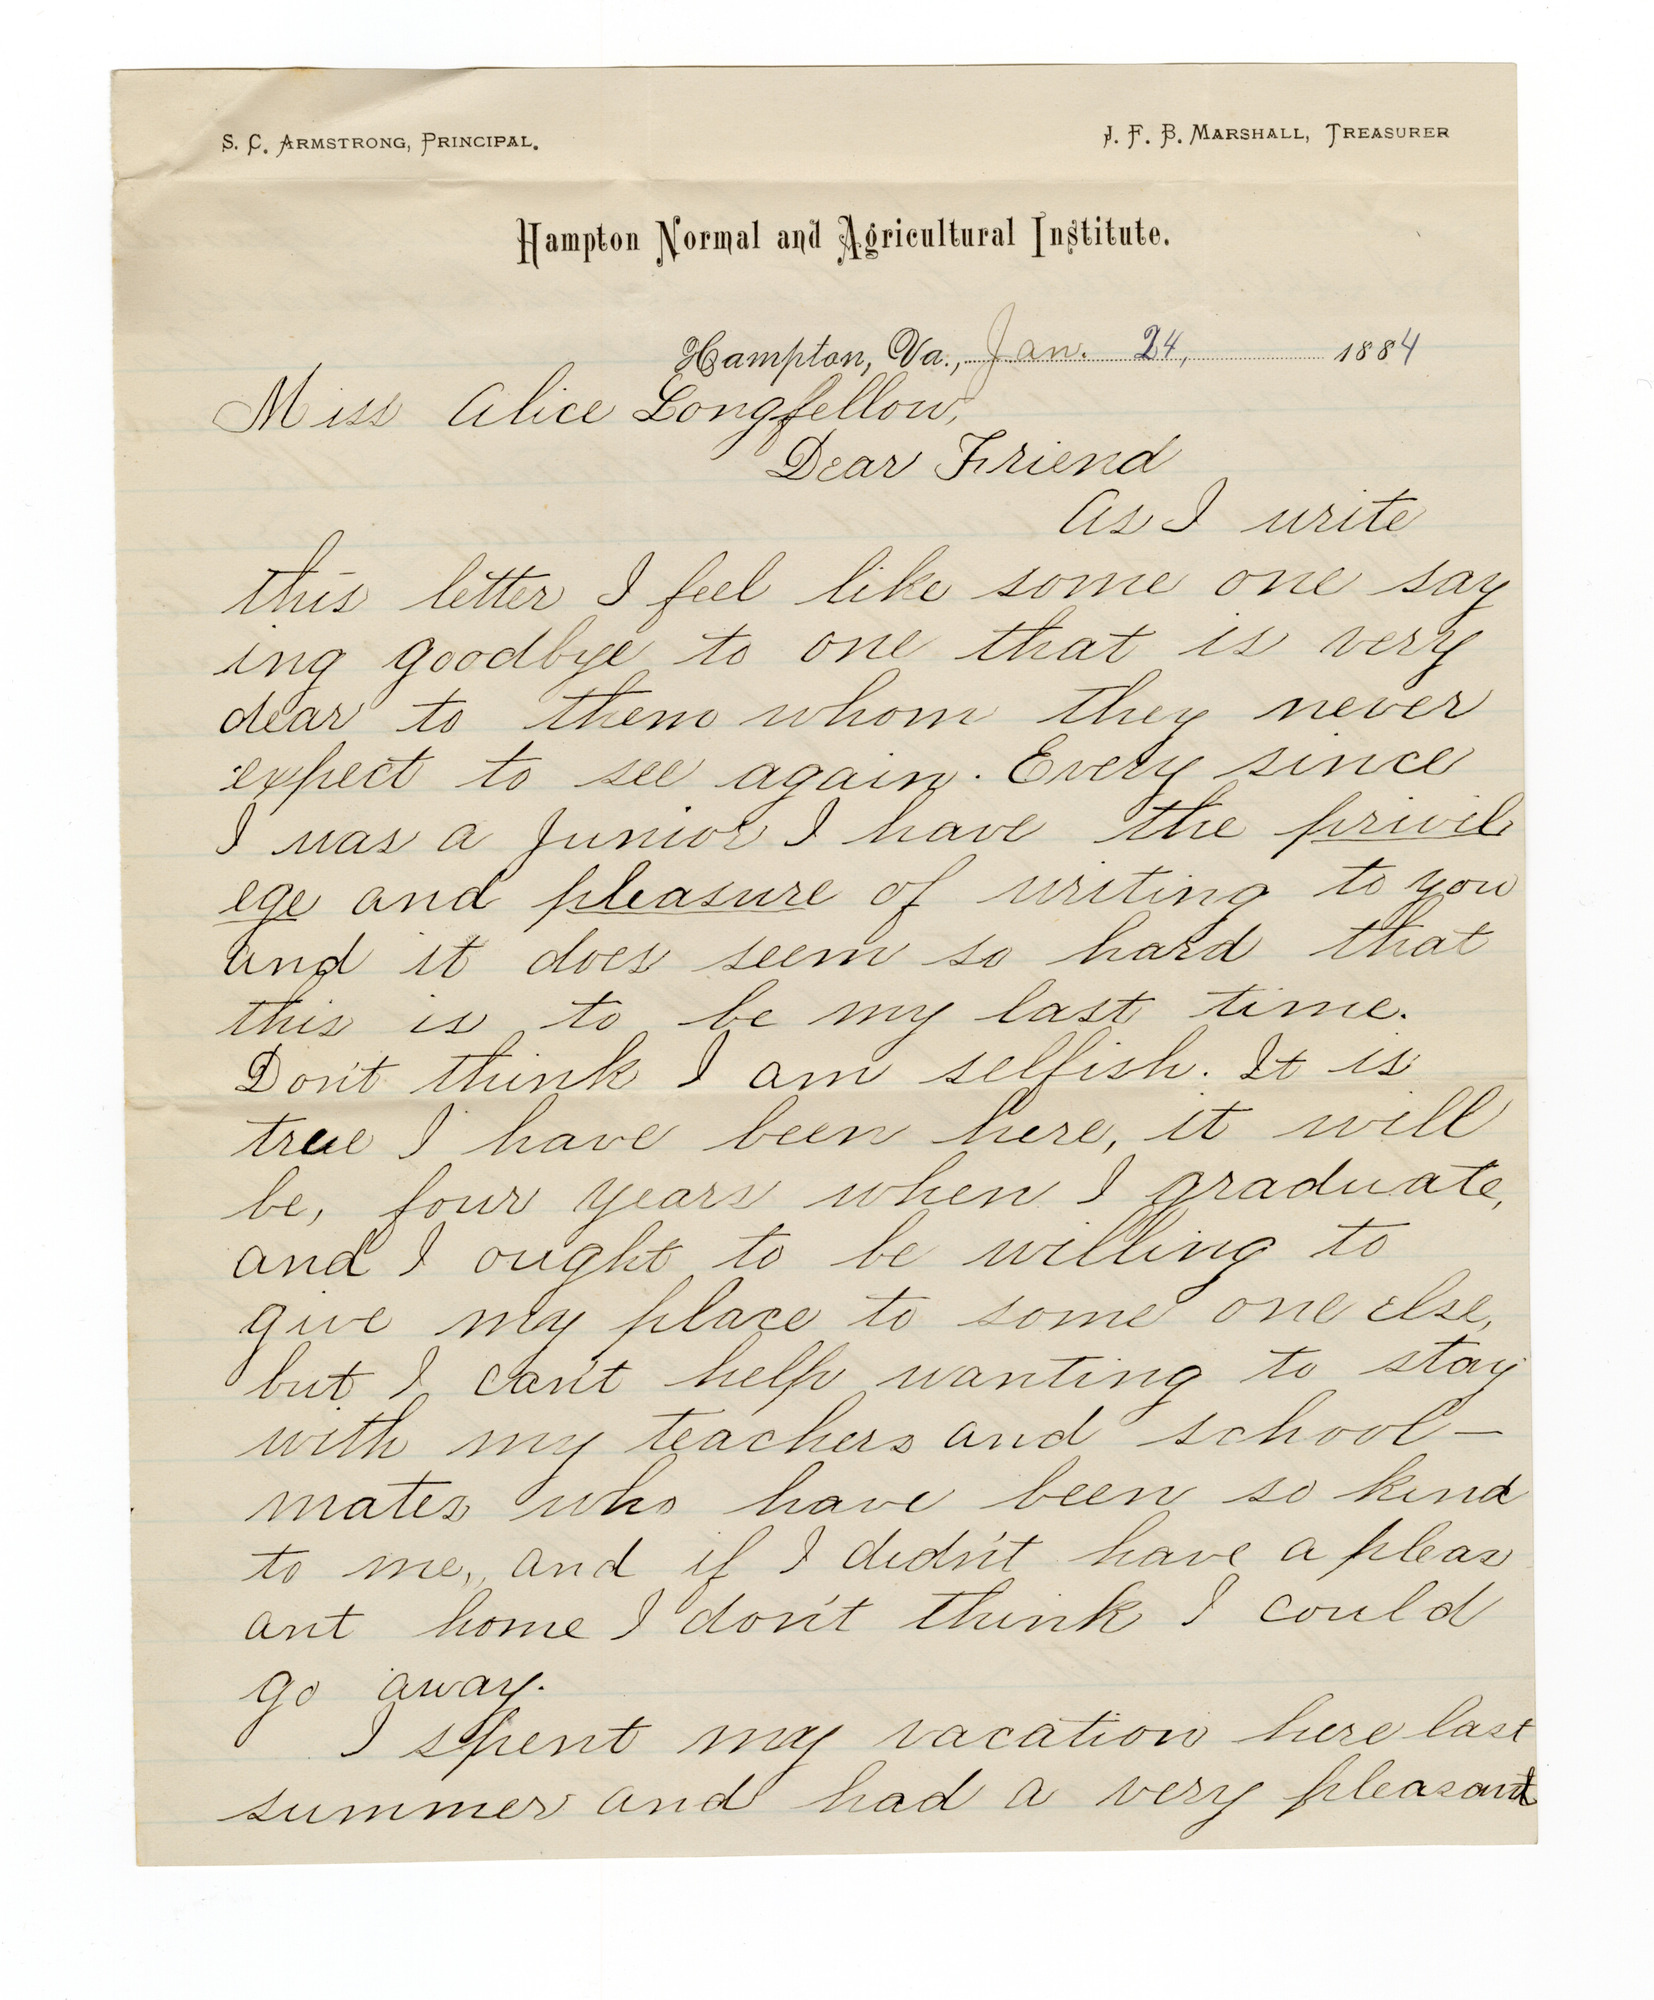 S. C. Armstrong, Principal.
J. F. B. Marshall, Treasurer
Hampton Normal and Agricultural Institute.
Hampton, Va., Jan. 24, 1884
Miss Alice Longfellow,
Dear Friend
As I write
this letter I feel like some one say
ing goodbye to one that is very
dear to them whom they never
expect to see again. Every since
I was a Junior I have the privil
ege and pleasure of writing to you
and it does seem so hard that
this is to be my last time.
Don't think I am selfish. It is
true I have been here, it will
be, four years when I graduate,
and I ought to be willing to
give my place to some one else,
but I can't help wanting to stay
with my teachers and school-
mates who have been so kind
to me, and if I didn't have a pleas
ant home I don't think I could
go away.
I spent my vacation here last
summer and had a very pleasant